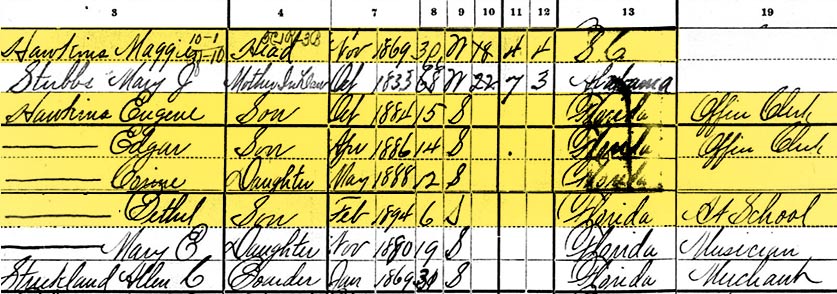 3 4 7 8 9 10 11 12 13 19
Hawkins Maggie 10-1 Head Nov 1869 30 W 18 4 4 S C
Stubbs Mary J Mother In Law Oct 1833 W 22 7 3
Hawkins Eugene Son Oct 1884 15 S Florida Office Clerk
—— Edgar Son Apr 1886 14 S Florida Office Clerk
—— Corinne Daughter May 1888 12 S Florida
—— Bethel Son Feb 1894 6 S Florida At School
—— Mary E Daughter Nov 1880 19 S Florida Musician
Strickland Allen C Boarder Jan 1869 S Florida Merchant